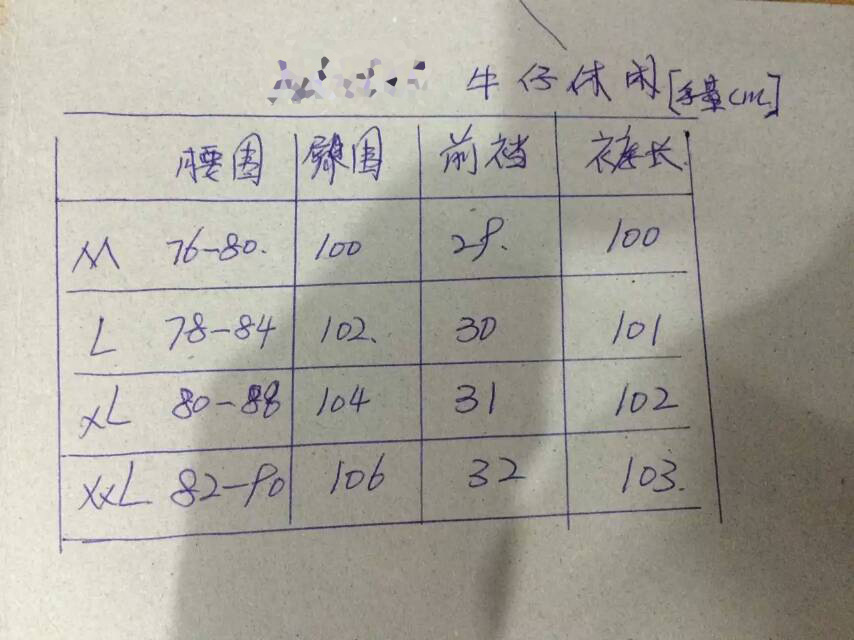 牛仔休闲[手量cm]
腰围 臀围 前裆 裤长
M 76-80. 100 29. 100
L 78-84 102. 30 101
XL 80-88 104 31 102
XXL 82-90 106 32 103.